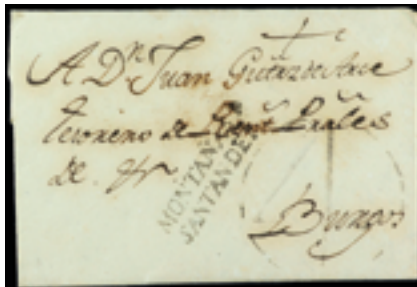 A Dn. Juan Gutrz de
Tesorero de Rent.s R.ales
de
MONTAÑAS
SANTANDER
Burgos